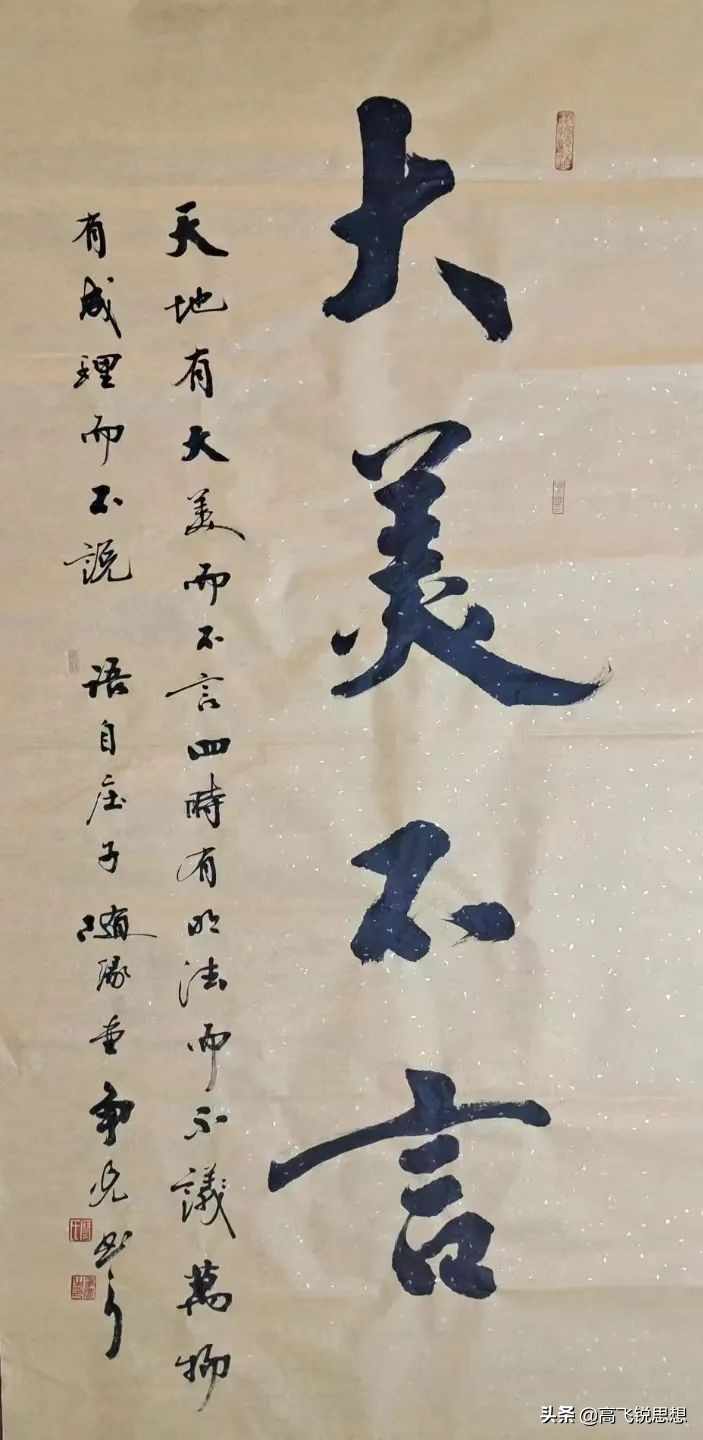 大美不言
天地有大美而不言四時有明法而不議萬物
有成理而不說 語自庄子随緣堂
头条 @高飞锐思想